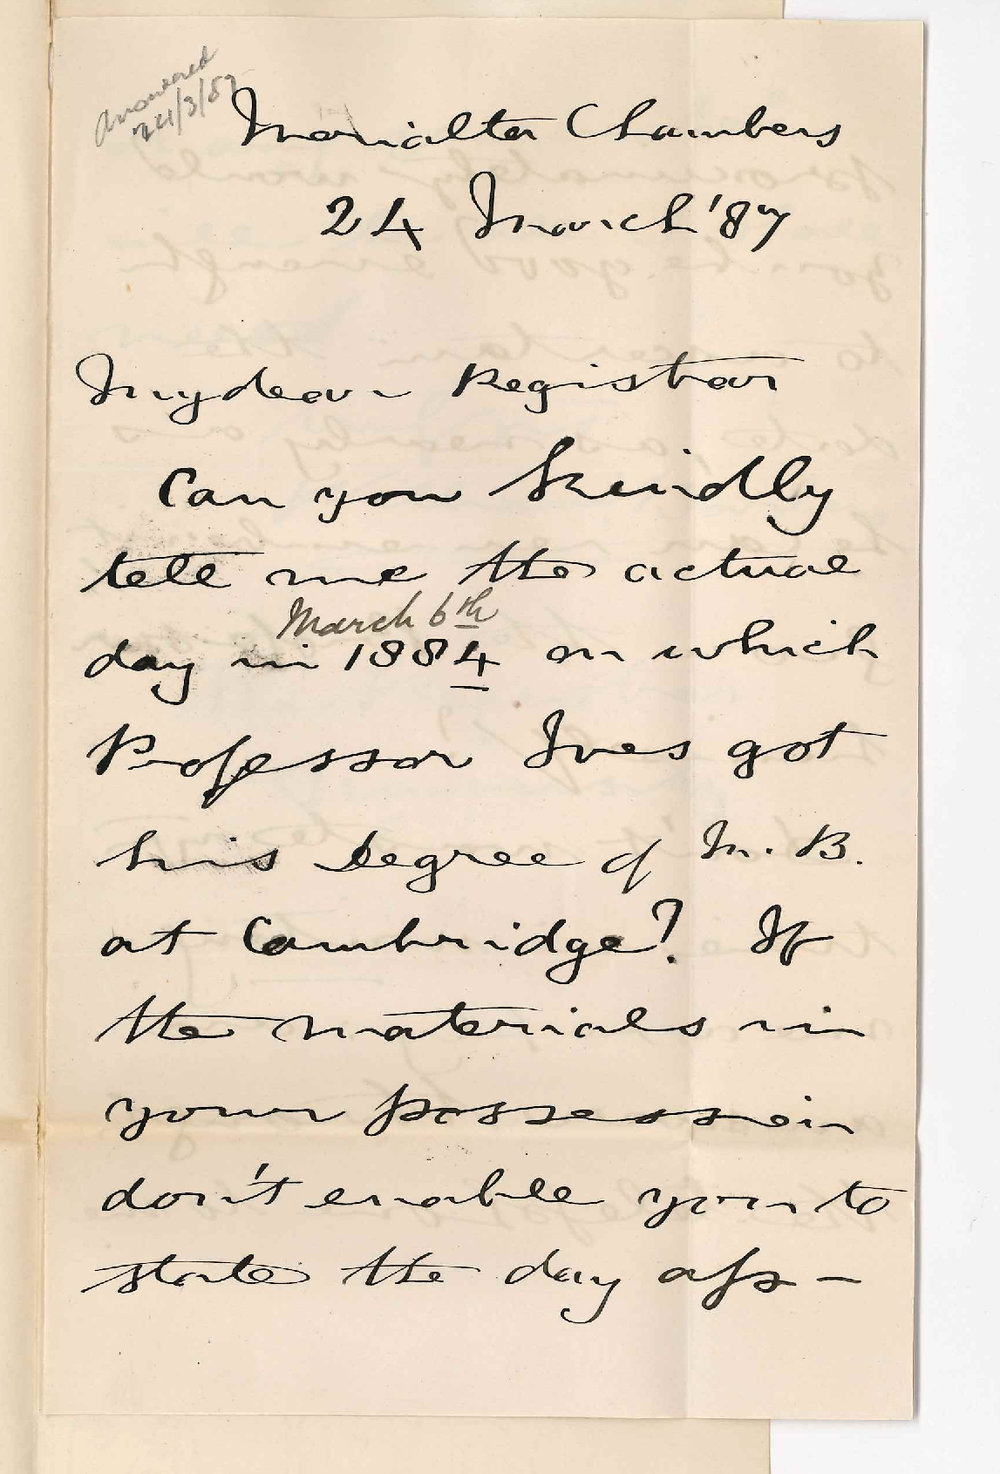 Answered
24/3/87
Morialta Chambers
24 March '87
My dear Registrar
Can you kindly
tell me the actual
March 6th
day in 1884 on which
Professor Ives got
his Degree of M. B.
at Cambridge? If
the materials in
your possession
don't enable you to
state the day ap-